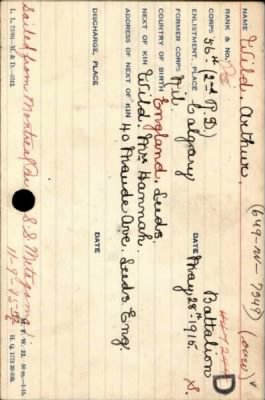 (649-W- 7349)
NAME Wild, Arthur,
RANK & NO. Pte.
CORPS 56th (2nd R.D.) Battalion
ENLISTMENT, PLACE Calgary DATE May 28th 1915.
FORMER CORPS Nil.
COUNTRY OF BIRTH England, Leeds
NEXT OF KIN Wild, Mrs Hannah.
ADDRESS OF NEXT OF KIN 40 Maude Ave. Leeds, Eng.
DISCHARGE, PLACE DATE
D
S.
L. L. M. & D.
Sailed from Montreal Per S.S. Metagama
11-9-15
M. F. W. 22.
H. Q. 1772